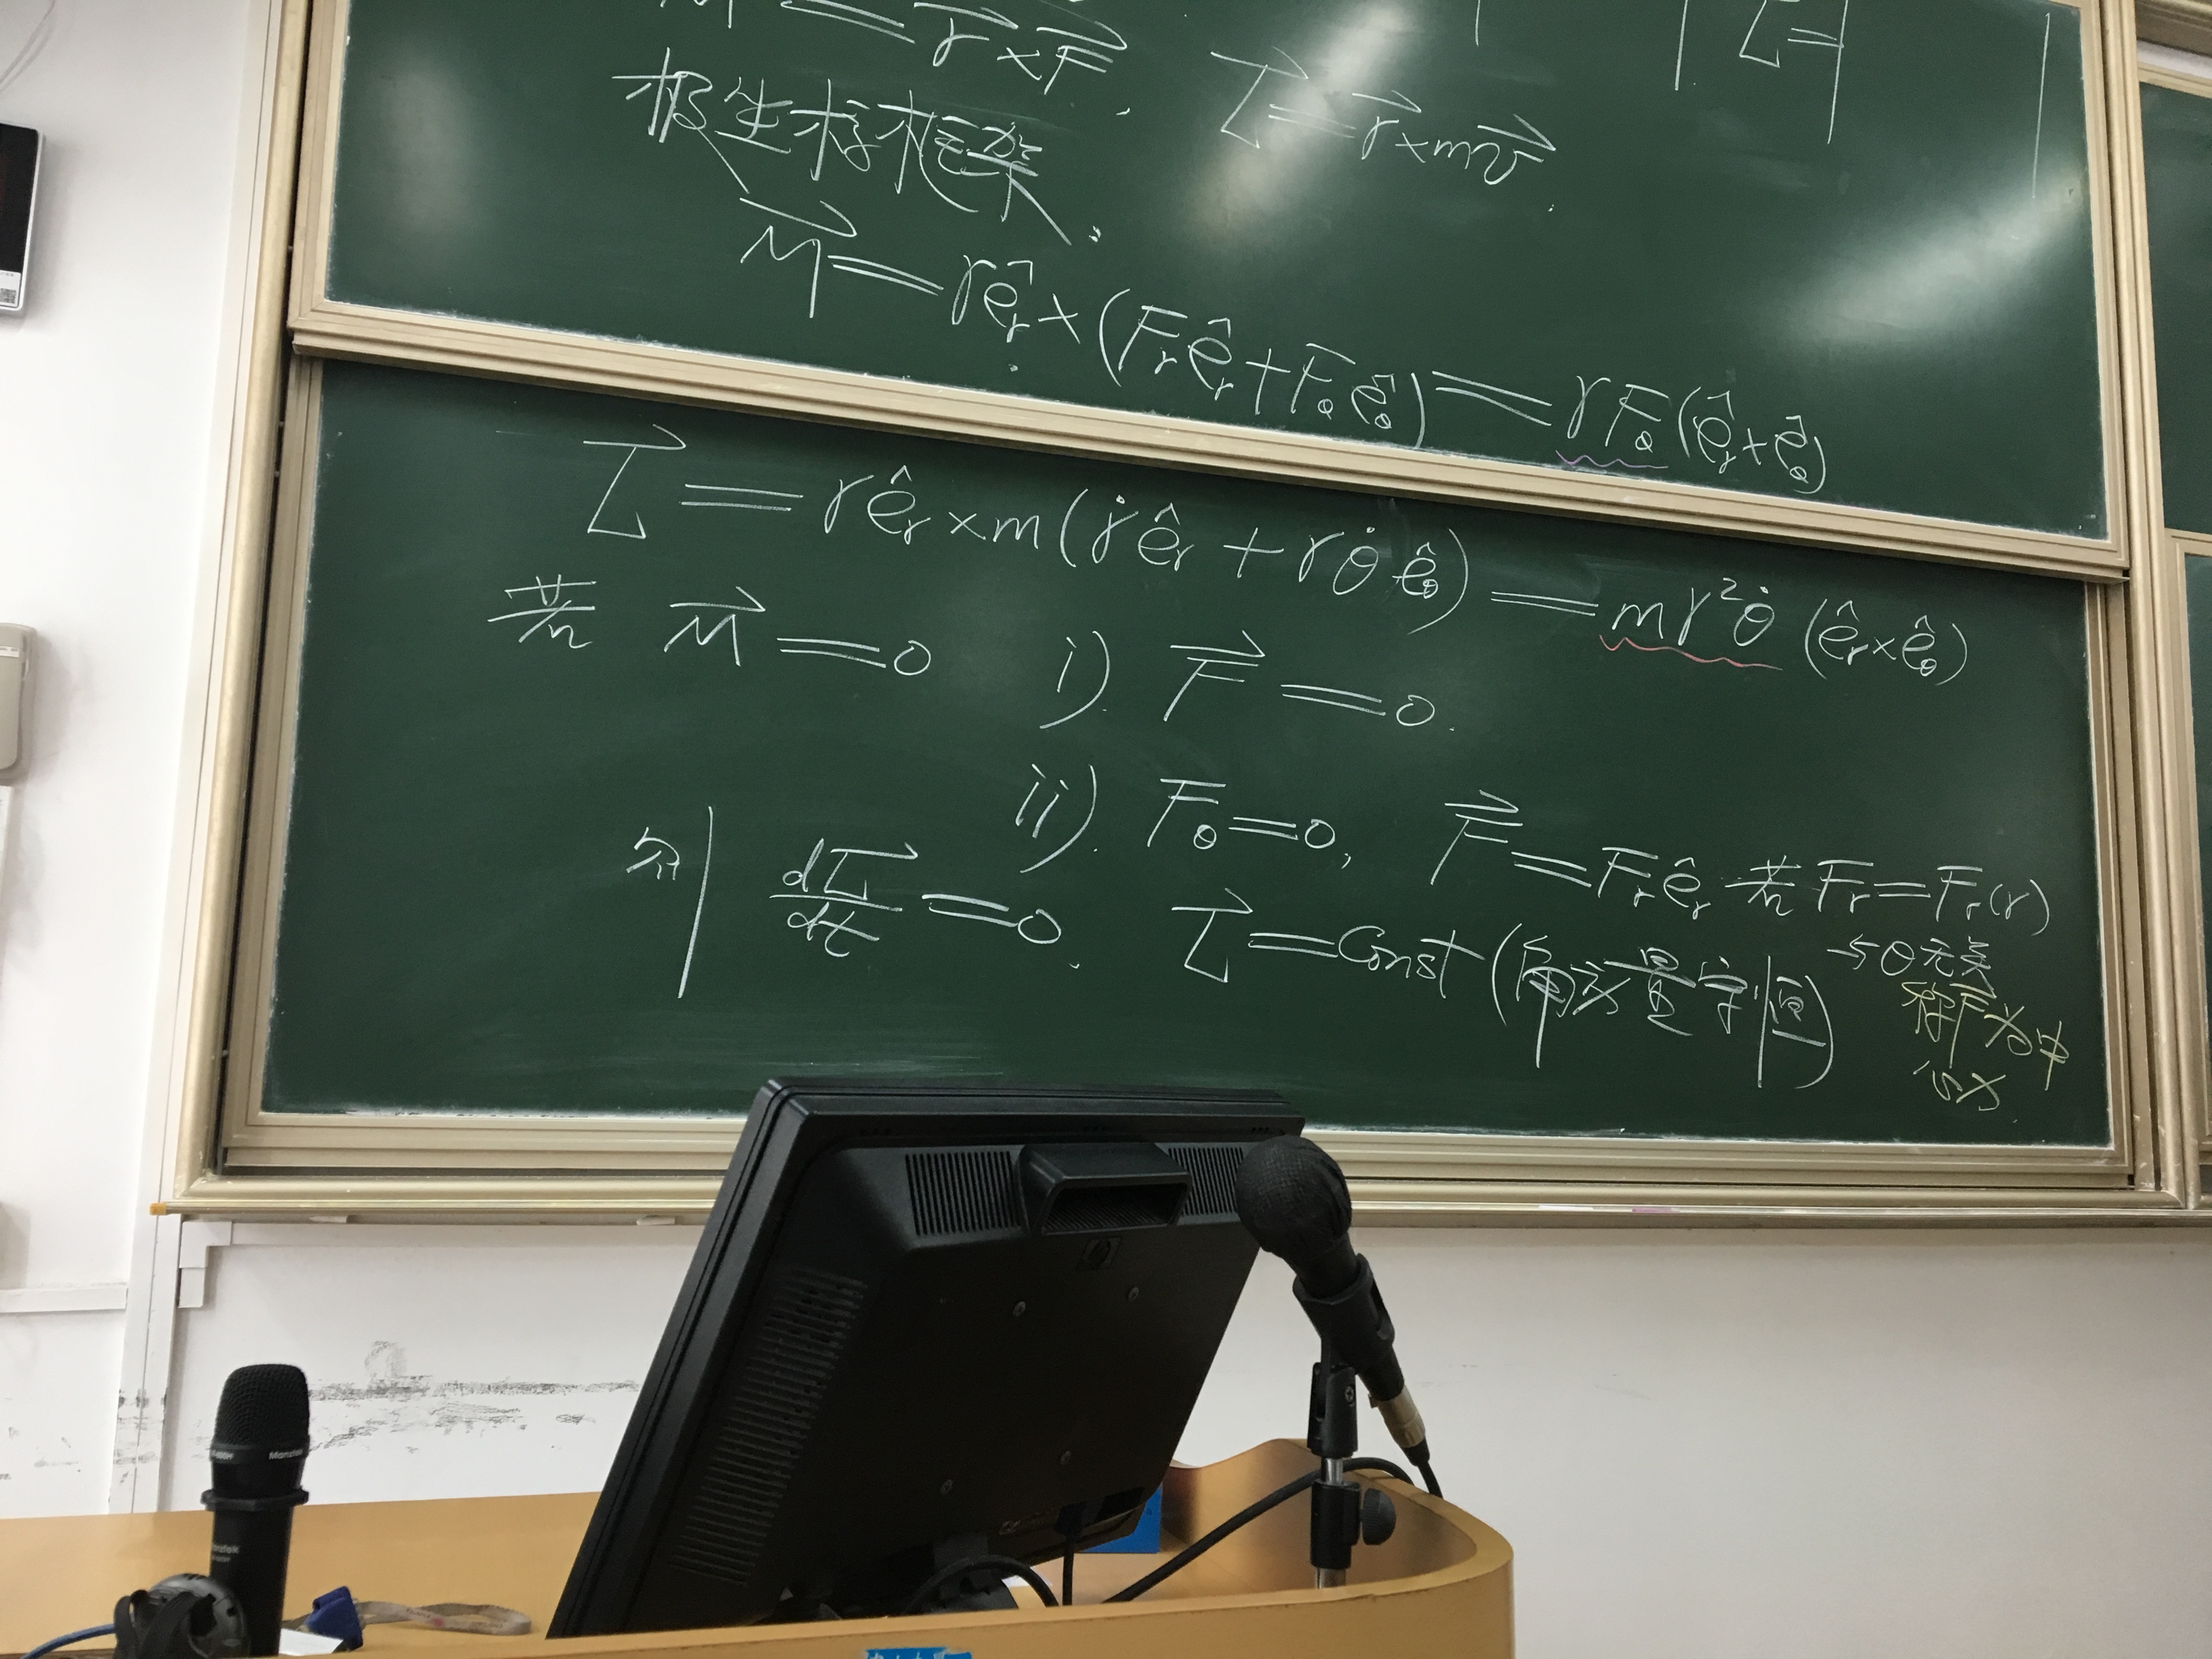 M⃗ = r⃗ × F⃗ , L⃗ = r⃗ × m v⃗
L =
极坐标框架.
M⃗ = r ê_r × (F_r ê_r + F_θ ê_θ) = r F_θ (ê_r × ê_θ)
L⃗ = r ê_r × m ( ṙ ê_r + r θ̇ ê_θ ) = m r² θ̇ (ê_r × ê_θ)
若 M⃗ = 0 i). F⃗ = 0.
ii). F_θ = 0, F⃗ = F_r ê_r 若 F_r = F_r(r)
→与θ无关
称F⃗为中
心力.
则 dL⃗/dt = 0. L⃗ = Const (角动量守恒)